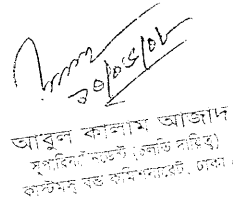 ২০/০৫/০৮
আবুল কালাম আজাদ
সুপারিনটেনডেন্ট (চলতি দায়িত্ব)
কাস্টমস্ বন্ড কমিশনারেট, ঢাকা।